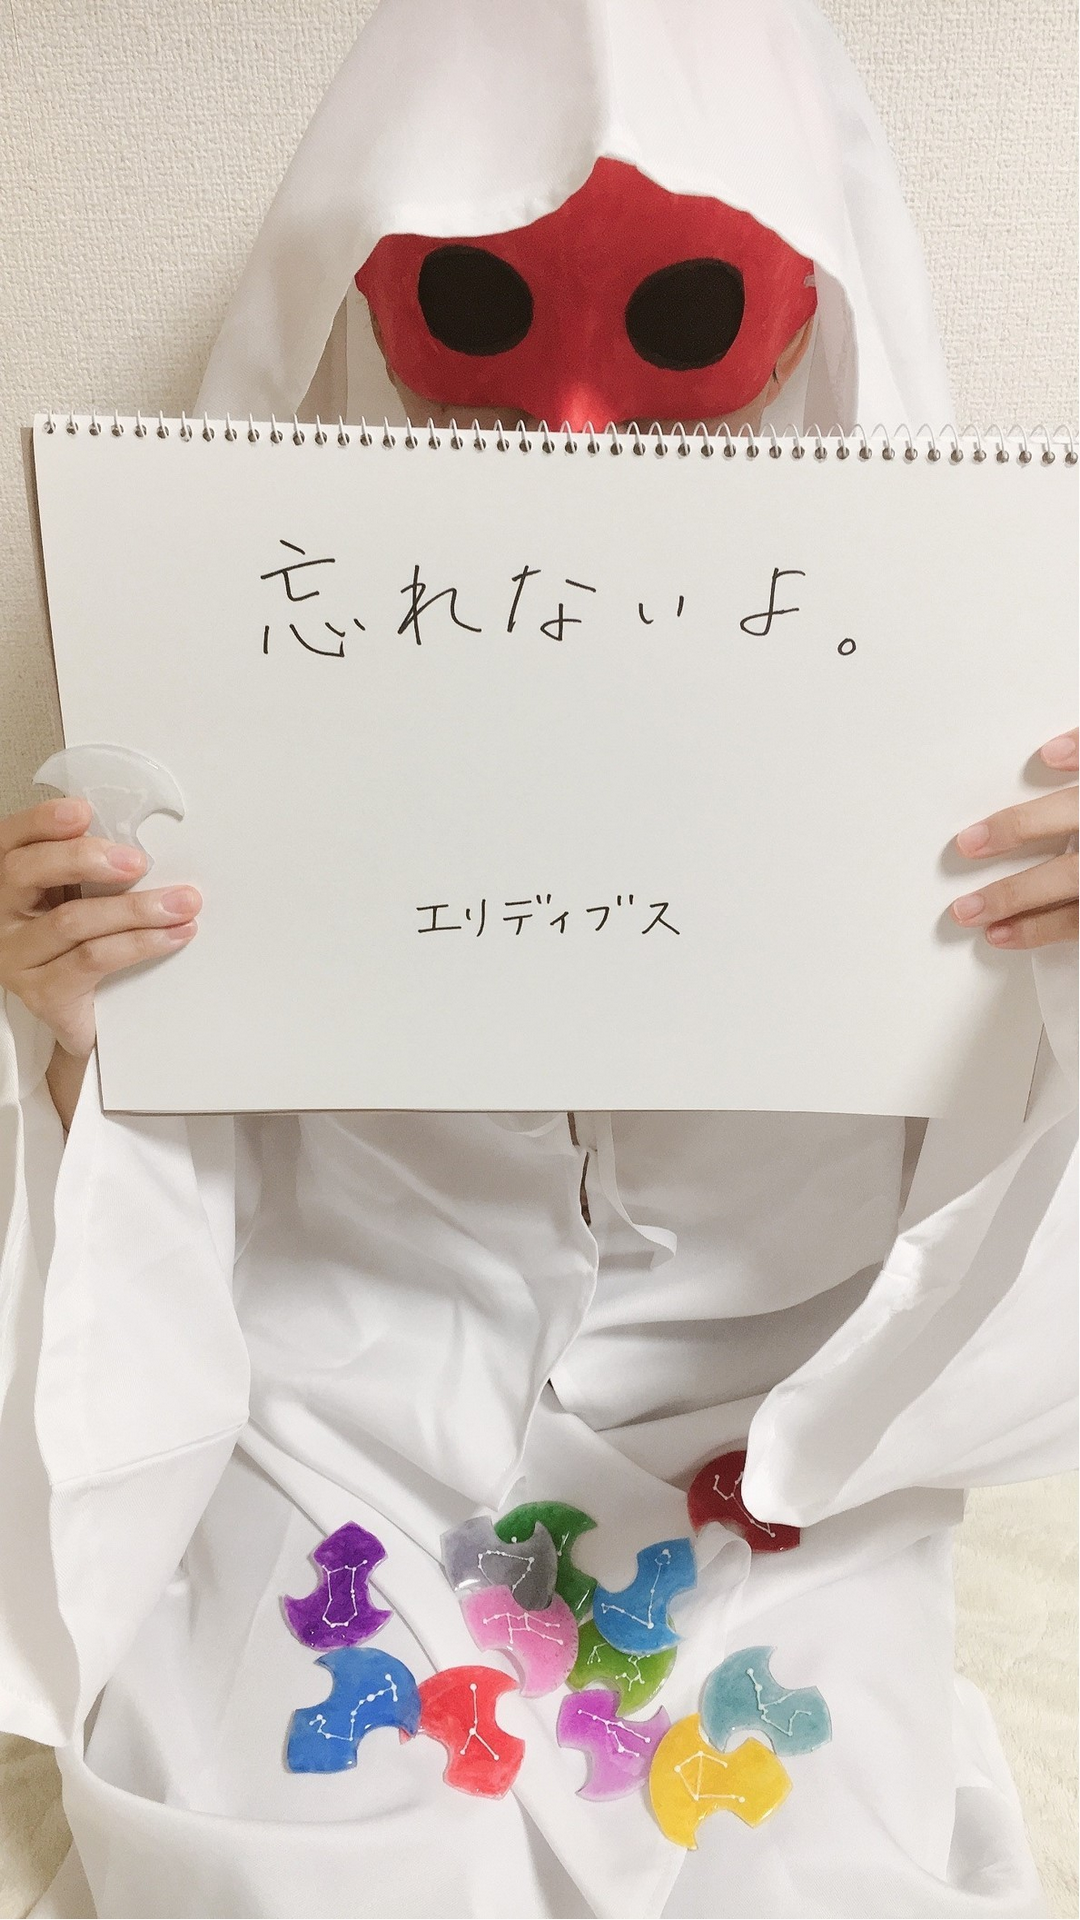 忘れないよ。
エリディブス